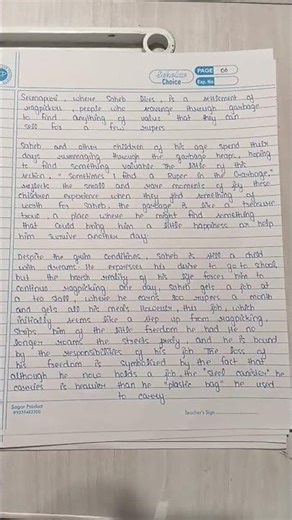 Choice
PAGE 06
Exp. No.
Seemapuri, where Saheb lives, is a settlement of
ragpickers, people who scavenge through garbage
to find anything of value that they can
sell for a few rupees
Saheb and other children of his age spend their
days rummaging through the garbage heaps, hoping
to find something valuable The title of this
section, "Sometimes I find a Rupee in the Garbage,"
reflects the small and rare moments of joy these
children experience when they find something of
worth For Saheb, the garbage is like a treasure
trove, a place where he might find something
that could bring him a little happiness or help
him survive another day.
Despite the grim conditions, Saheb is still a child
with dreams He expresses his desire to go to school
but the harsh reality of his life forces him to
continue ragpicking One day, Saheb gets a job at
a tea stall, where he earns 800 rupees a month
and gets all his meals However, this job, which
initially seems like a step up from ragpicking,
strips him of the little freedom he had He no
longer roams the streets freely, and he is bound
by the responsibilities of his job The loss of
his freedom is symbolised by the fact that
although he now holds a job, the "steel canister" he
carries is heavier than he "plastic bag" he used
to carry
Sagar Product
Teacher's Sign